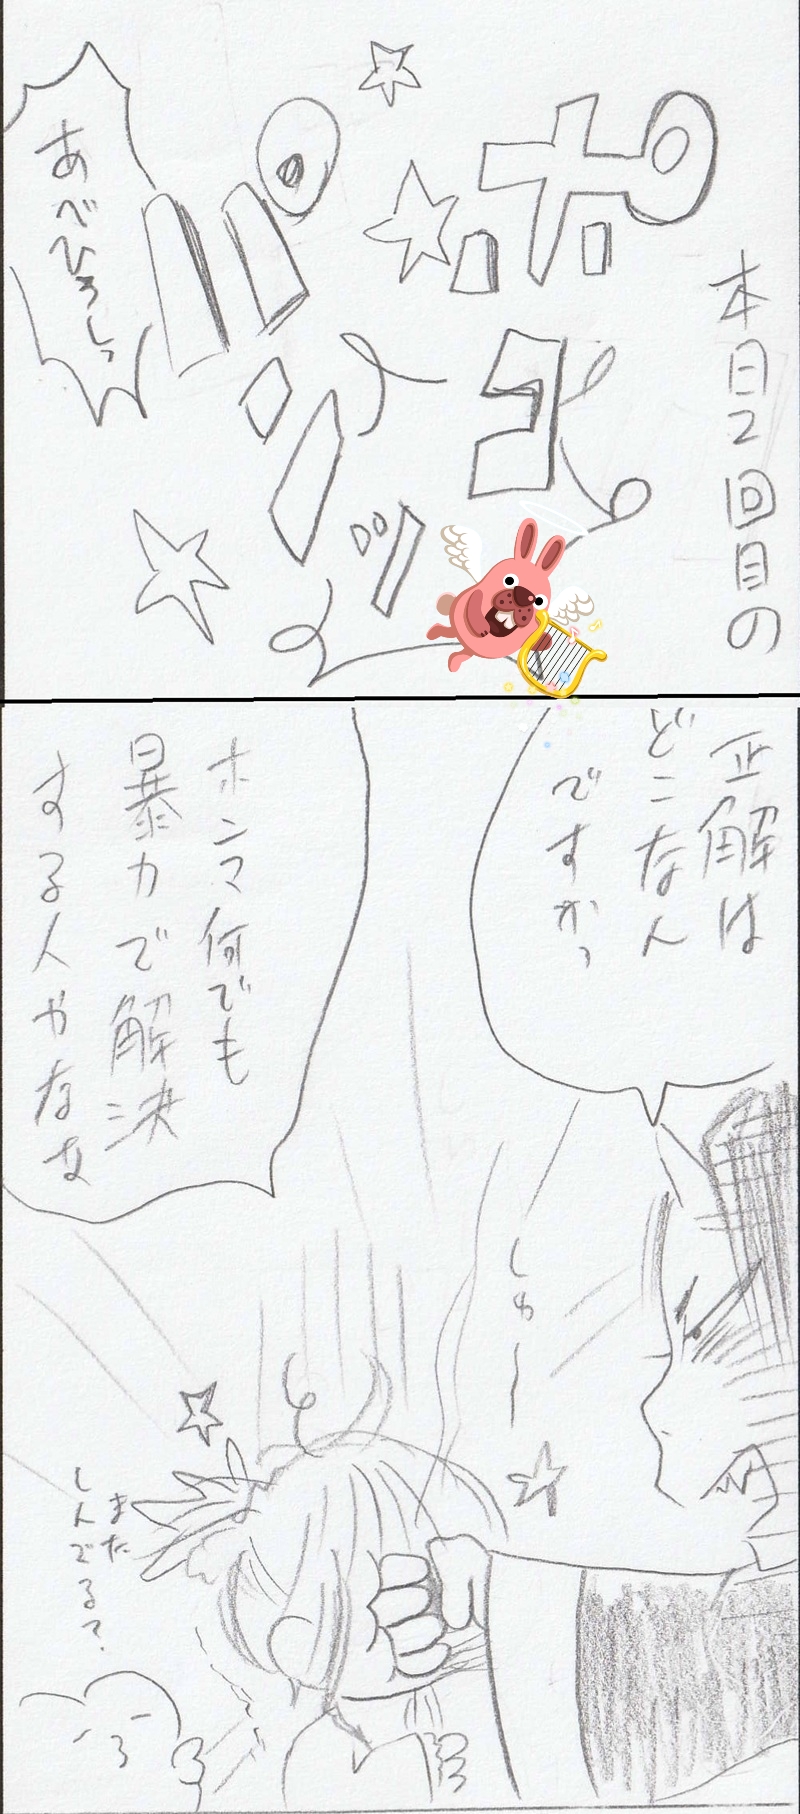 本日2回目の
ポコ
パンッ
あべひろしっ
正解は
どこなん
ですかっ
ホンマ何でも
暴力で解決
する人やなな
しゅー
また
しんでるで?